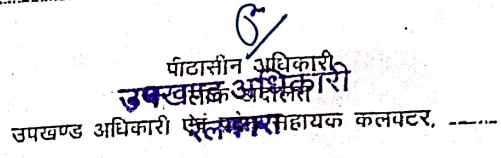 पीठासीन अधिकारी
उपखण्ड अधिकारी
लोक अदालत
उपखण्ड अधिकारी एवं सहायक कलक्टर,